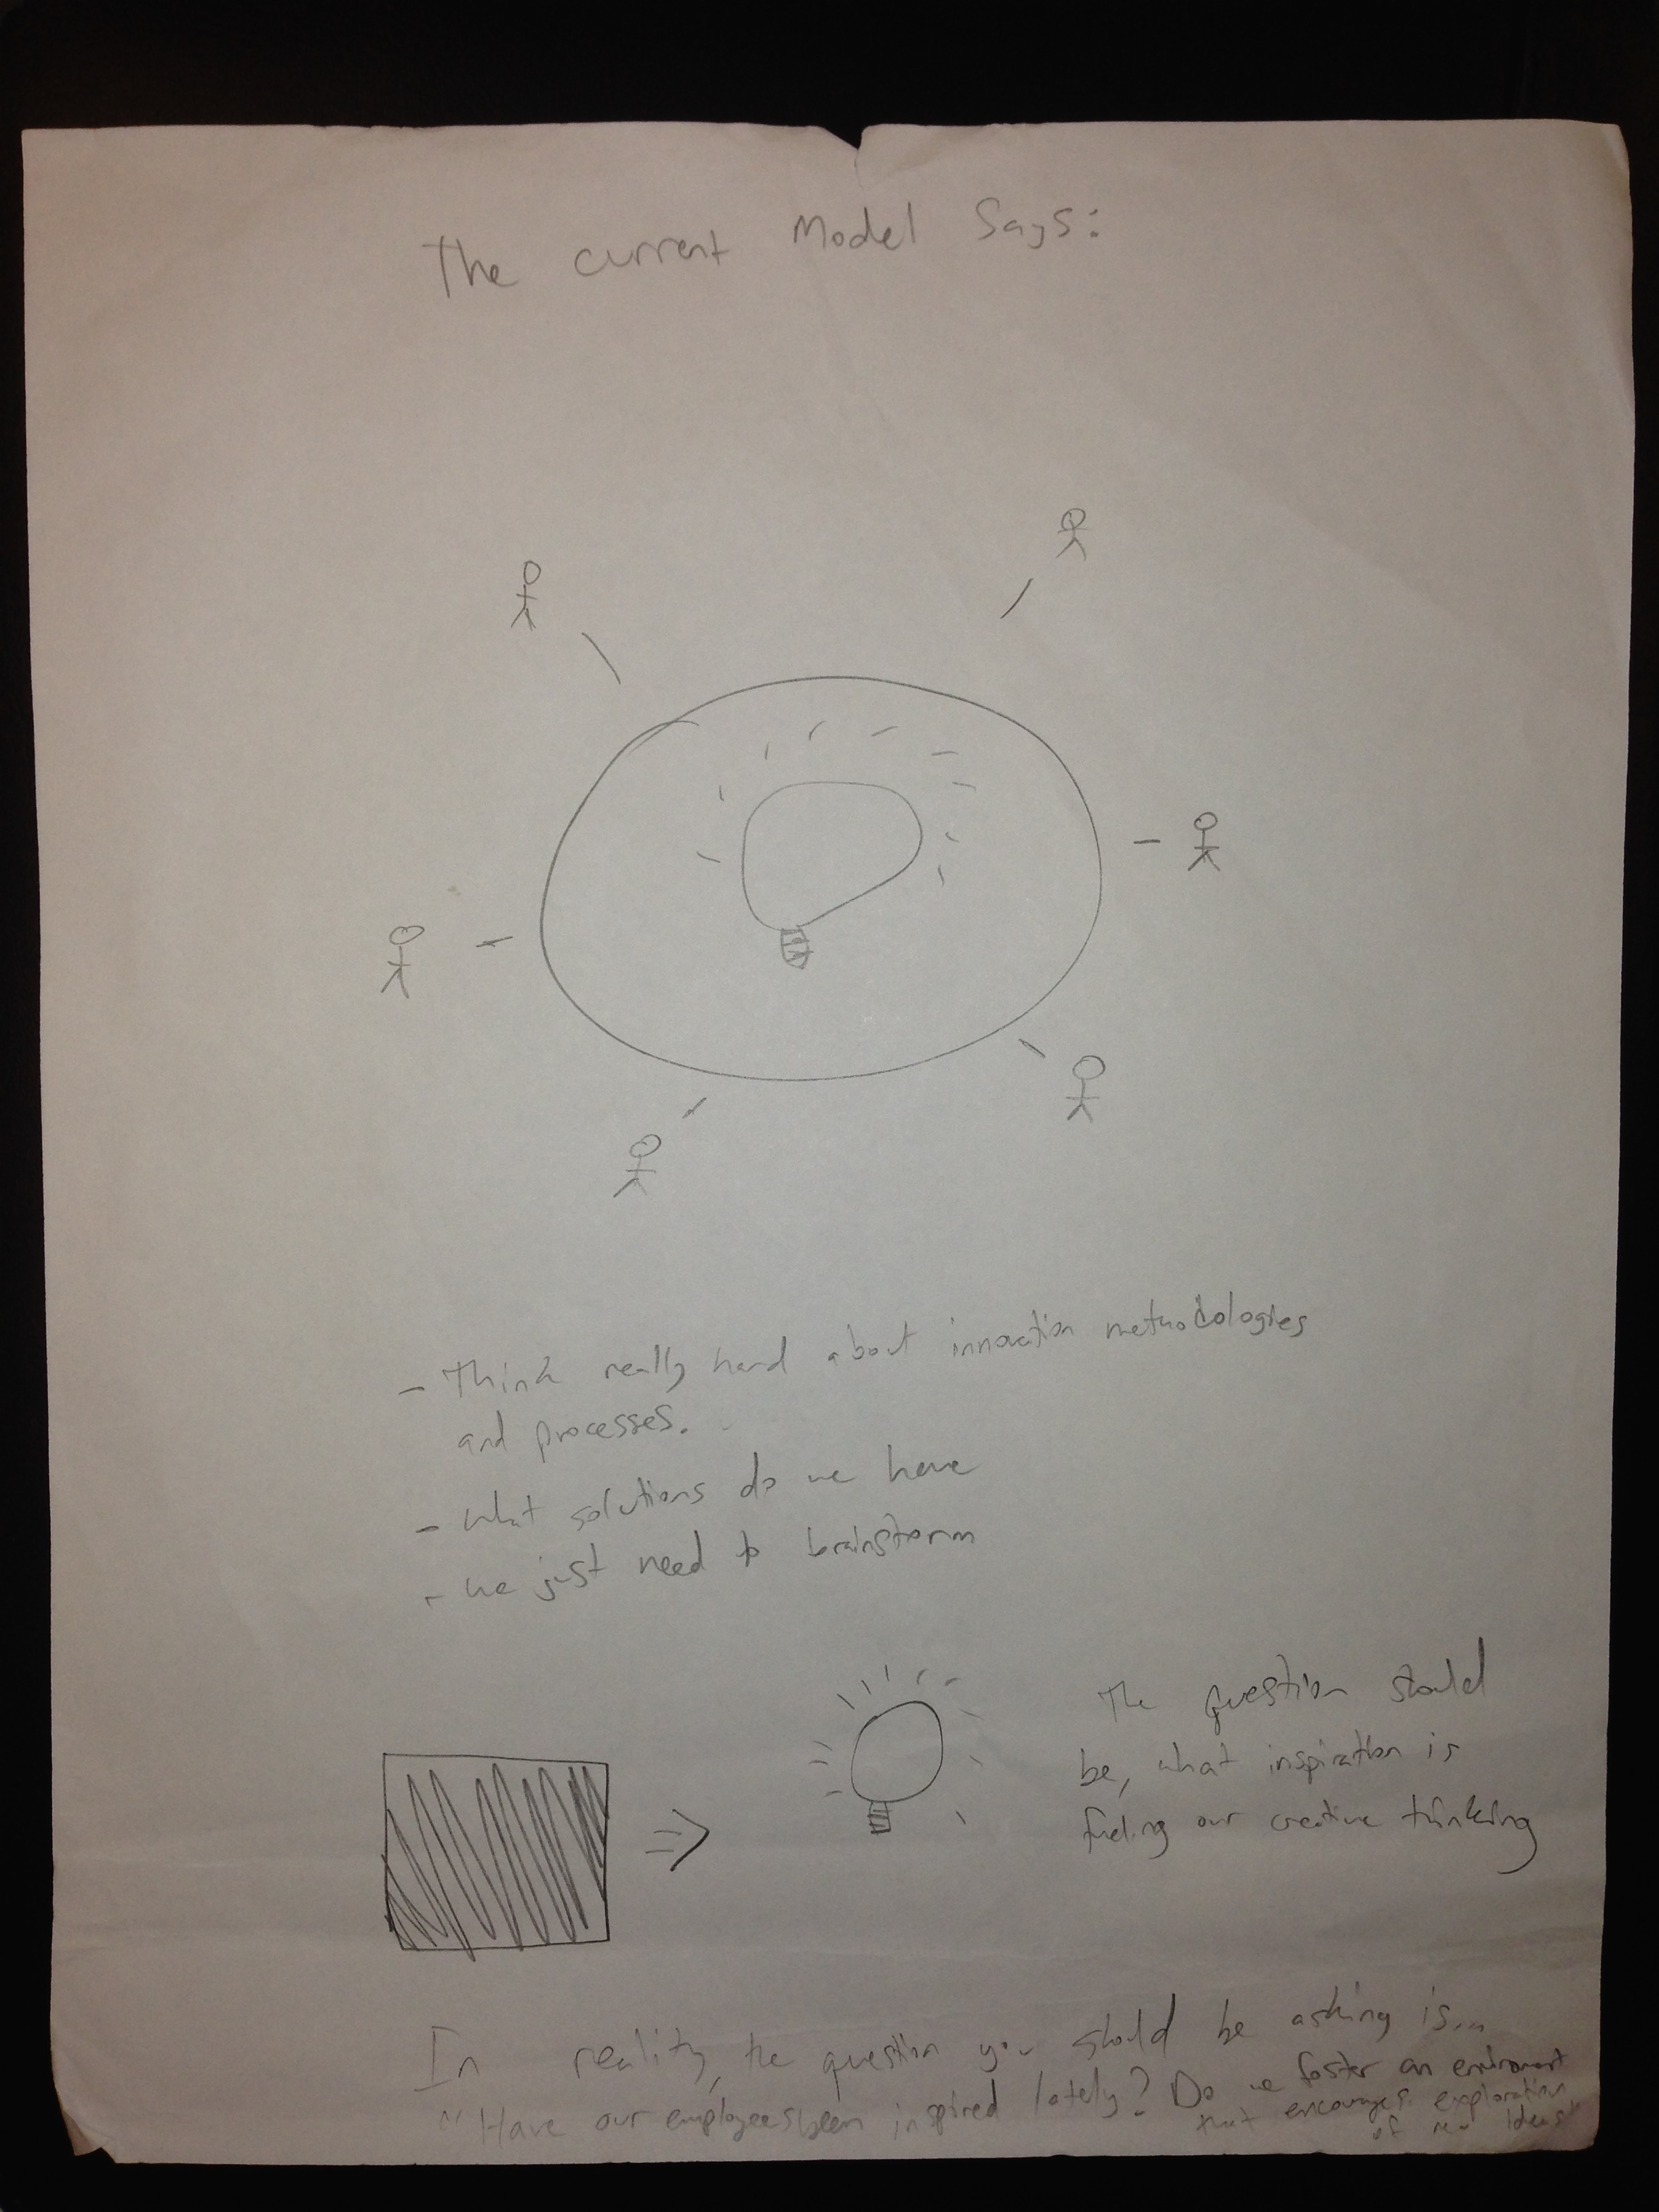 The current Model Says:
- Think really hard about innovation methodologies
and processes.
- what solutions do we have
- we just need to brainstorm
The question should
be, what inspiration is
fueling our creative thinking
In reality, the question you should be asking is...
"Have our employees been inspired lately? Do we foster an environment
that encourages exploration
of new ideas"